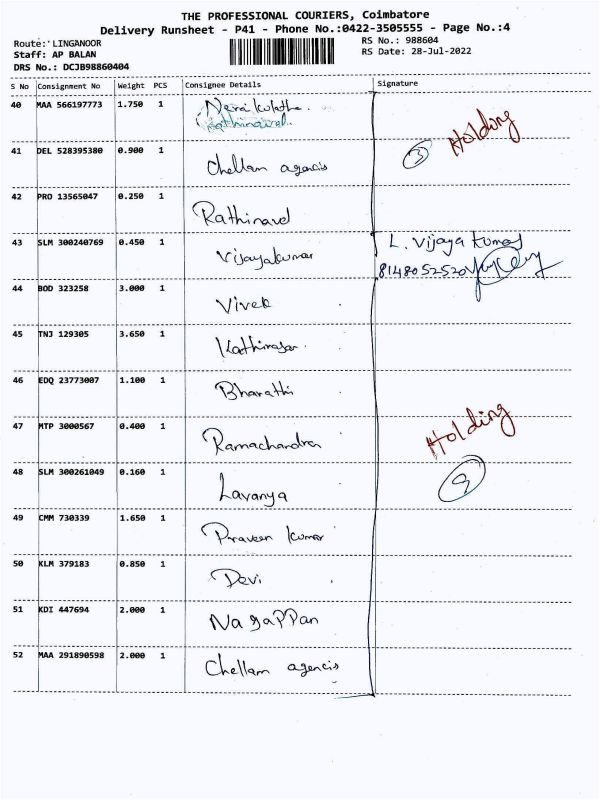 THE PROFESSIONAL COURIERS, Coimbatore
Delivery Runsheet - P41 - Phone No.:0422-3505555 - Page No.:4
Route: LINGANOOR
RS No.: 988604
Staff: AP BALAN
RS Date: 28-Jul-2022
DRS No.: DCJB98860404
S No Consignment No Weight PCS Consignee Details Signature
40 MAA 566197773 1.750 1
Rathinavel
41 DEL 528395380 0.900 1 Chellam agencis
3 Holding
42 PRO 13565047 0.250 1 Rathinavel
43 SLM 300240769 0.450 1 Vijayakumar L. Vijaya Kumar
8148052520
44 BOD 323258 3.000 1 Vivek
45 TNJ 129305 3.650 1
46 EDQ 23773007 1.100 1 Bharathi
47 MTP 3000567 0.400 1 Ramachandran Holding
48 SLM 300261049 0.160 1 Lavanya 9
49 CMM 730339 1.650 1 Praveen kumar
50 KLM 379183 0.850 1 Devi
51 KDI 447694 2.000 1 Nagappan
52 MAA 291890598 2.000 1 Chellam agencis